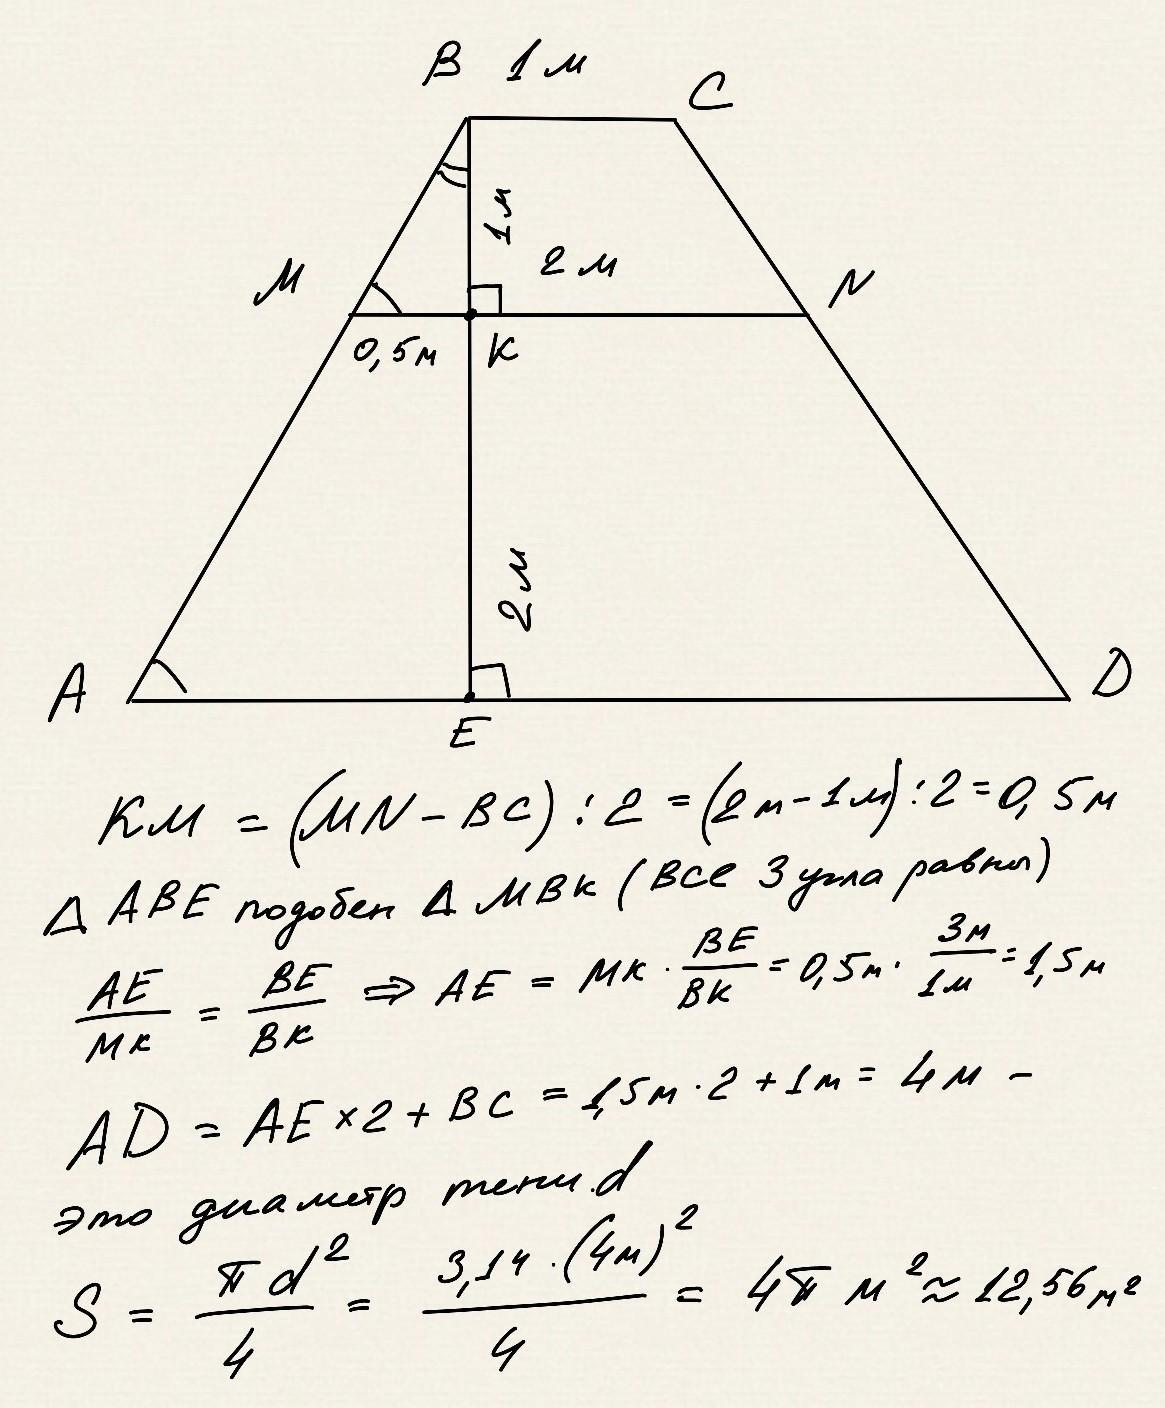 B 1 м C
1 м
M 2 м N
0,5м K
2 м
A D
E
KM = (MN - BC) : 2 = (2м - 1м) : 2 = 0,5м
Δ ABE подобен Δ MBK (все 3 угла равны)
AE/MK = BE/BK ⇒ AE = MK · BE/BK = 0,5м · 3м/1м = 1,5м
AD = AE × 2 + BC = 1,5м · 2 + 1м = 4м -
это диаметр тени.d
S = πd²/4 = 3,14 · (4м)²/4 = 4π м² ≈ 12,56м²